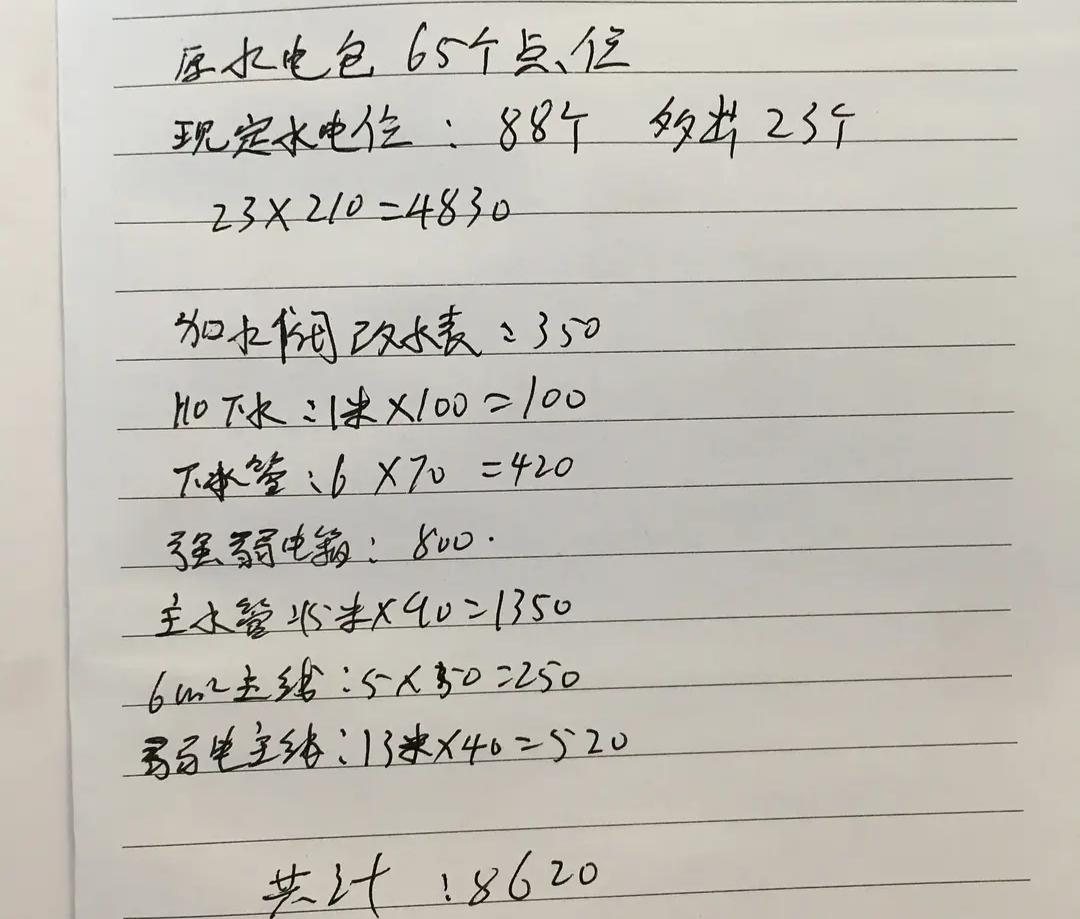 原水电包 65个点位
现定水电位：88个 多出23个
23×210=4830
加水阀改水表：350
110下水：1米×100=100
下水管：6×70=420
强弱电箱：800.
主水管：15米×90=1350
6m²主线：5×50=250
弱电主线：13米×40=520
共计：8620